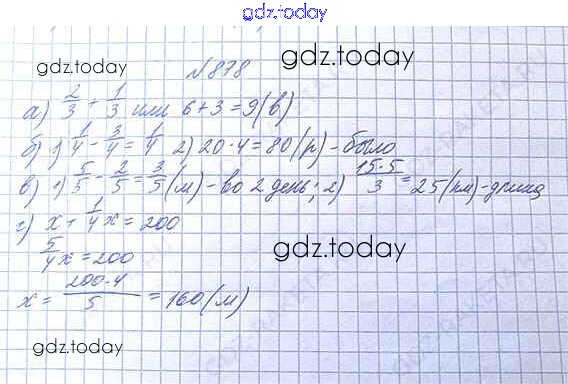 gdz.today
gdz.today
gdz.today
№878
а) 2/3 + 1/3 или 6+3=9(в)
б) 1) 1/4 - 3/4 = 1/4 2) 20·4=80(р)-было
в) 1) 5/5 - 2/5 = 3/5 (м)-во 2 день; 2) 15·5/3 = 25(км)-длина
г) x + 1/4 x = 200
5/4 x = 200
gdz.today
x = 200·4/5 = 160(м)
gdz.today